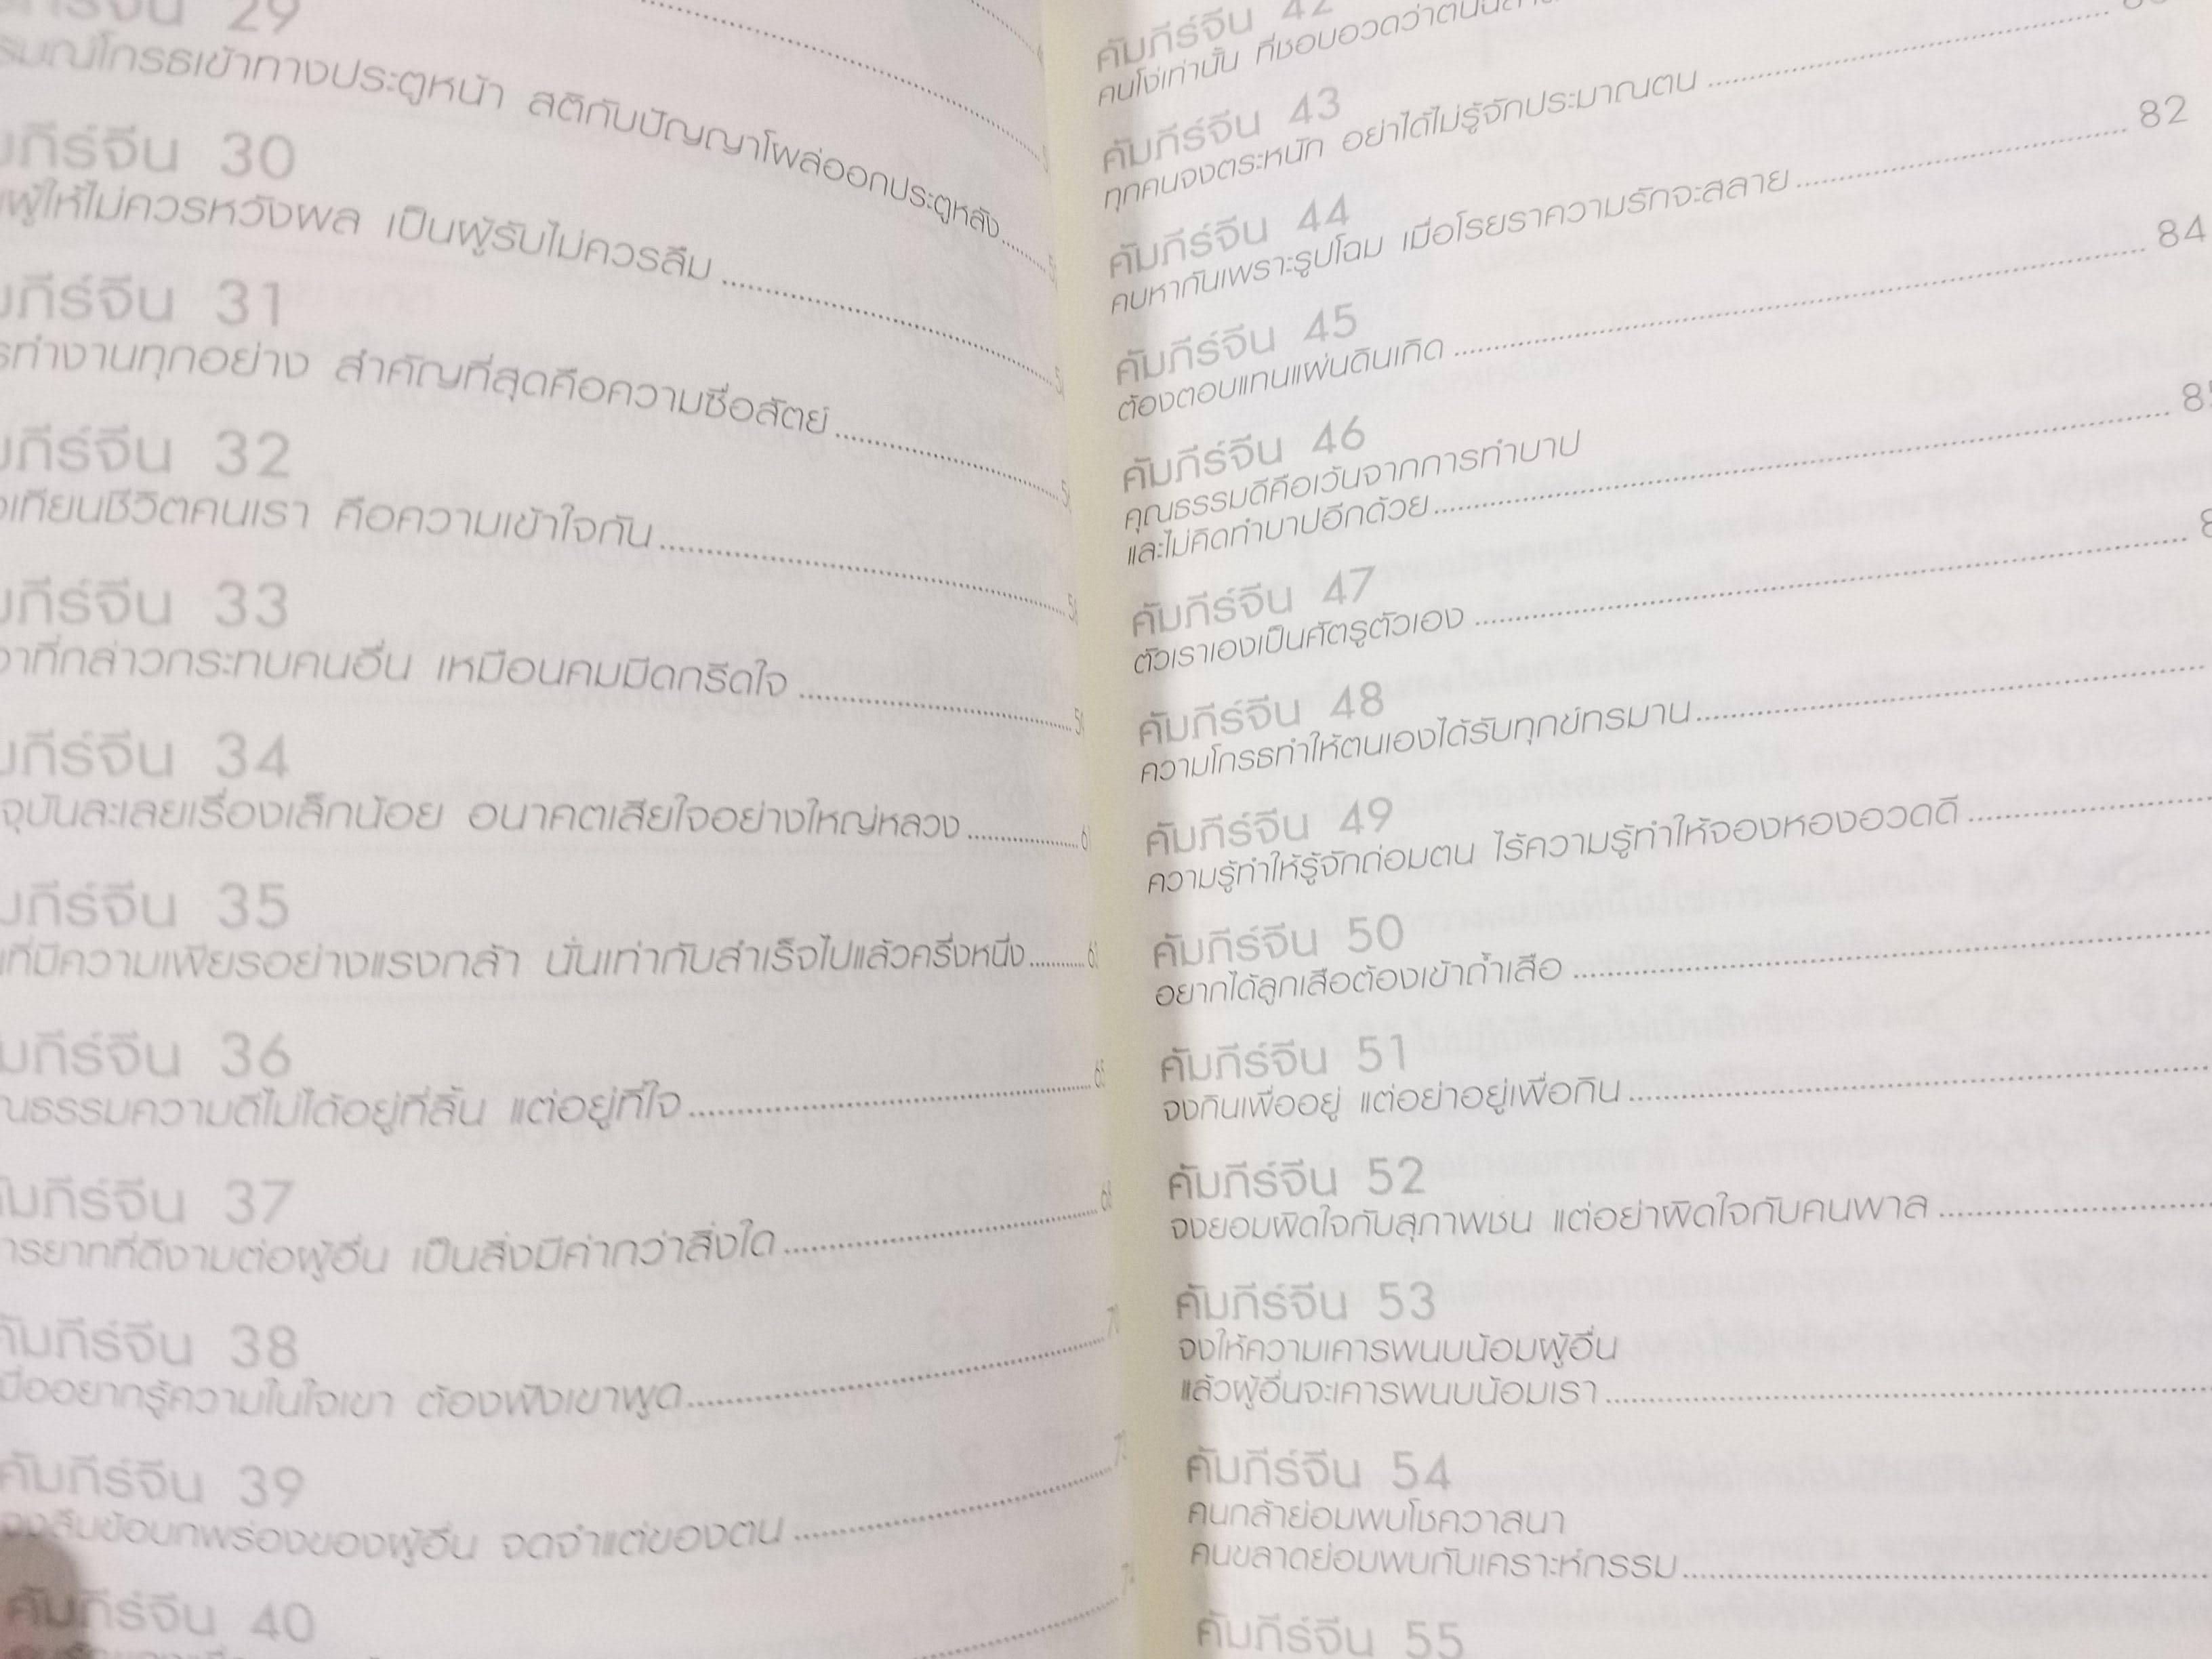 29
อารมณ์โกรธเข้าทางประตูหน้า สติกับปัญญาโผล่ออกประตูหลัง
คัมภีร์จีน 30
ผู้ให้ไม่ควรหวังผล เป็นผู้รับไม่ควรลืม
คัมภีร์จีน 31
ทำงานทุกอย่าง สำคัญที่สุดคือความซื่อสัตย์
คัมภีร์จีน 32
เทียนชีวิตคนเรา คือความเข้าใจกัน
คัมภีร์จีน 33
ที่กล่าวกระทบคนอื่น เหมือนคมมีดกรีดใจ
คัมภีร์จีน 34
จุบันละเลยเรื่องเล็กน้อย อนาคตเสียใจอย่างใหญ่หลวง
คัมภีร์จีน 35
ที่มีความเพียรอย่างแรงกล้า นั่นเท่ากับสำเร็จไปแล้วครึ่งหนึ่ง
คัมภีร์จีน 36
ณธรรมความดีไม่ได้อยู่ที่ลิ้น แต่อยู่ที่ใจ
คัมภีร์จีน 37
ารยาทที่ดีงามต่อผู้อื่น เป็นสิ่งมีค่ากว่าสิ่งใด
คัมภีร์จีน 38
มื่ออยากรู้ความในใจเขา ต้องฟังเขาพูด
คัมภีร์จีน 39
จงลืมข้อบกพร่องของผู้อื่น จดจำแต่ของตน
คัมภีร์จีน 40
คัมภีร์จีน 42
คนโง่เท่านั้น ที่ชอบอวดว่าตน
คัมภีร์จีน 43
ทุกคนจงตระหนัก อย่าได้ไม่รู้จักประมาณตน ........ 82
คัมภีร์จีน 44
คบหากันเพราะรูปโฉม เมื่อโรยราความรักจะสลาย ........ 84
คัมภีร์จีน 45
ต้องตอบแทนแผ่นดินเกิด
คัมภีร์จีน 46
คุณธรรมดีคือเว้นจากการทำบาป
และไม่คิดทำบาปอีกด้วย
คัมภีร์จีน 47
ตัวเราเองเป็นศัตรูตัวเอง
คัมภีร์จีน 48
ความโกรธทำให้ตนเองได้รับทุกข์ทรมาน
คัมภีร์จีน 49
ความรู้ทำให้รู้จักถ่อมตน ไร้ความรู้ทำให้จองหองอวดดี
คัมภีร์จีน 50
อยากได้ลูกเสือต้องเข้าถ้ำเสือ
คัมภีร์จีน 51
จงกินเพื่ออยู่ แต่อย่าอยู่เพื่อกิน
คัมภีร์จีน 52
จงยอมผิดใจกับสุภาพชน แต่อย่าผิดใจกับคนพาล
คัมภีร์จีน 53
จงให้ความเคารพนบน้อมผู้อื่น
แล้วผู้อื่นจะเคารพนบน้อมเรา
คัมภีร์จีน 54
คนกล้าย่อมพบโชควาสนา
คนขลาดย่อมพบกับเคราะห์กรรม
คัมภีร์จีน 55